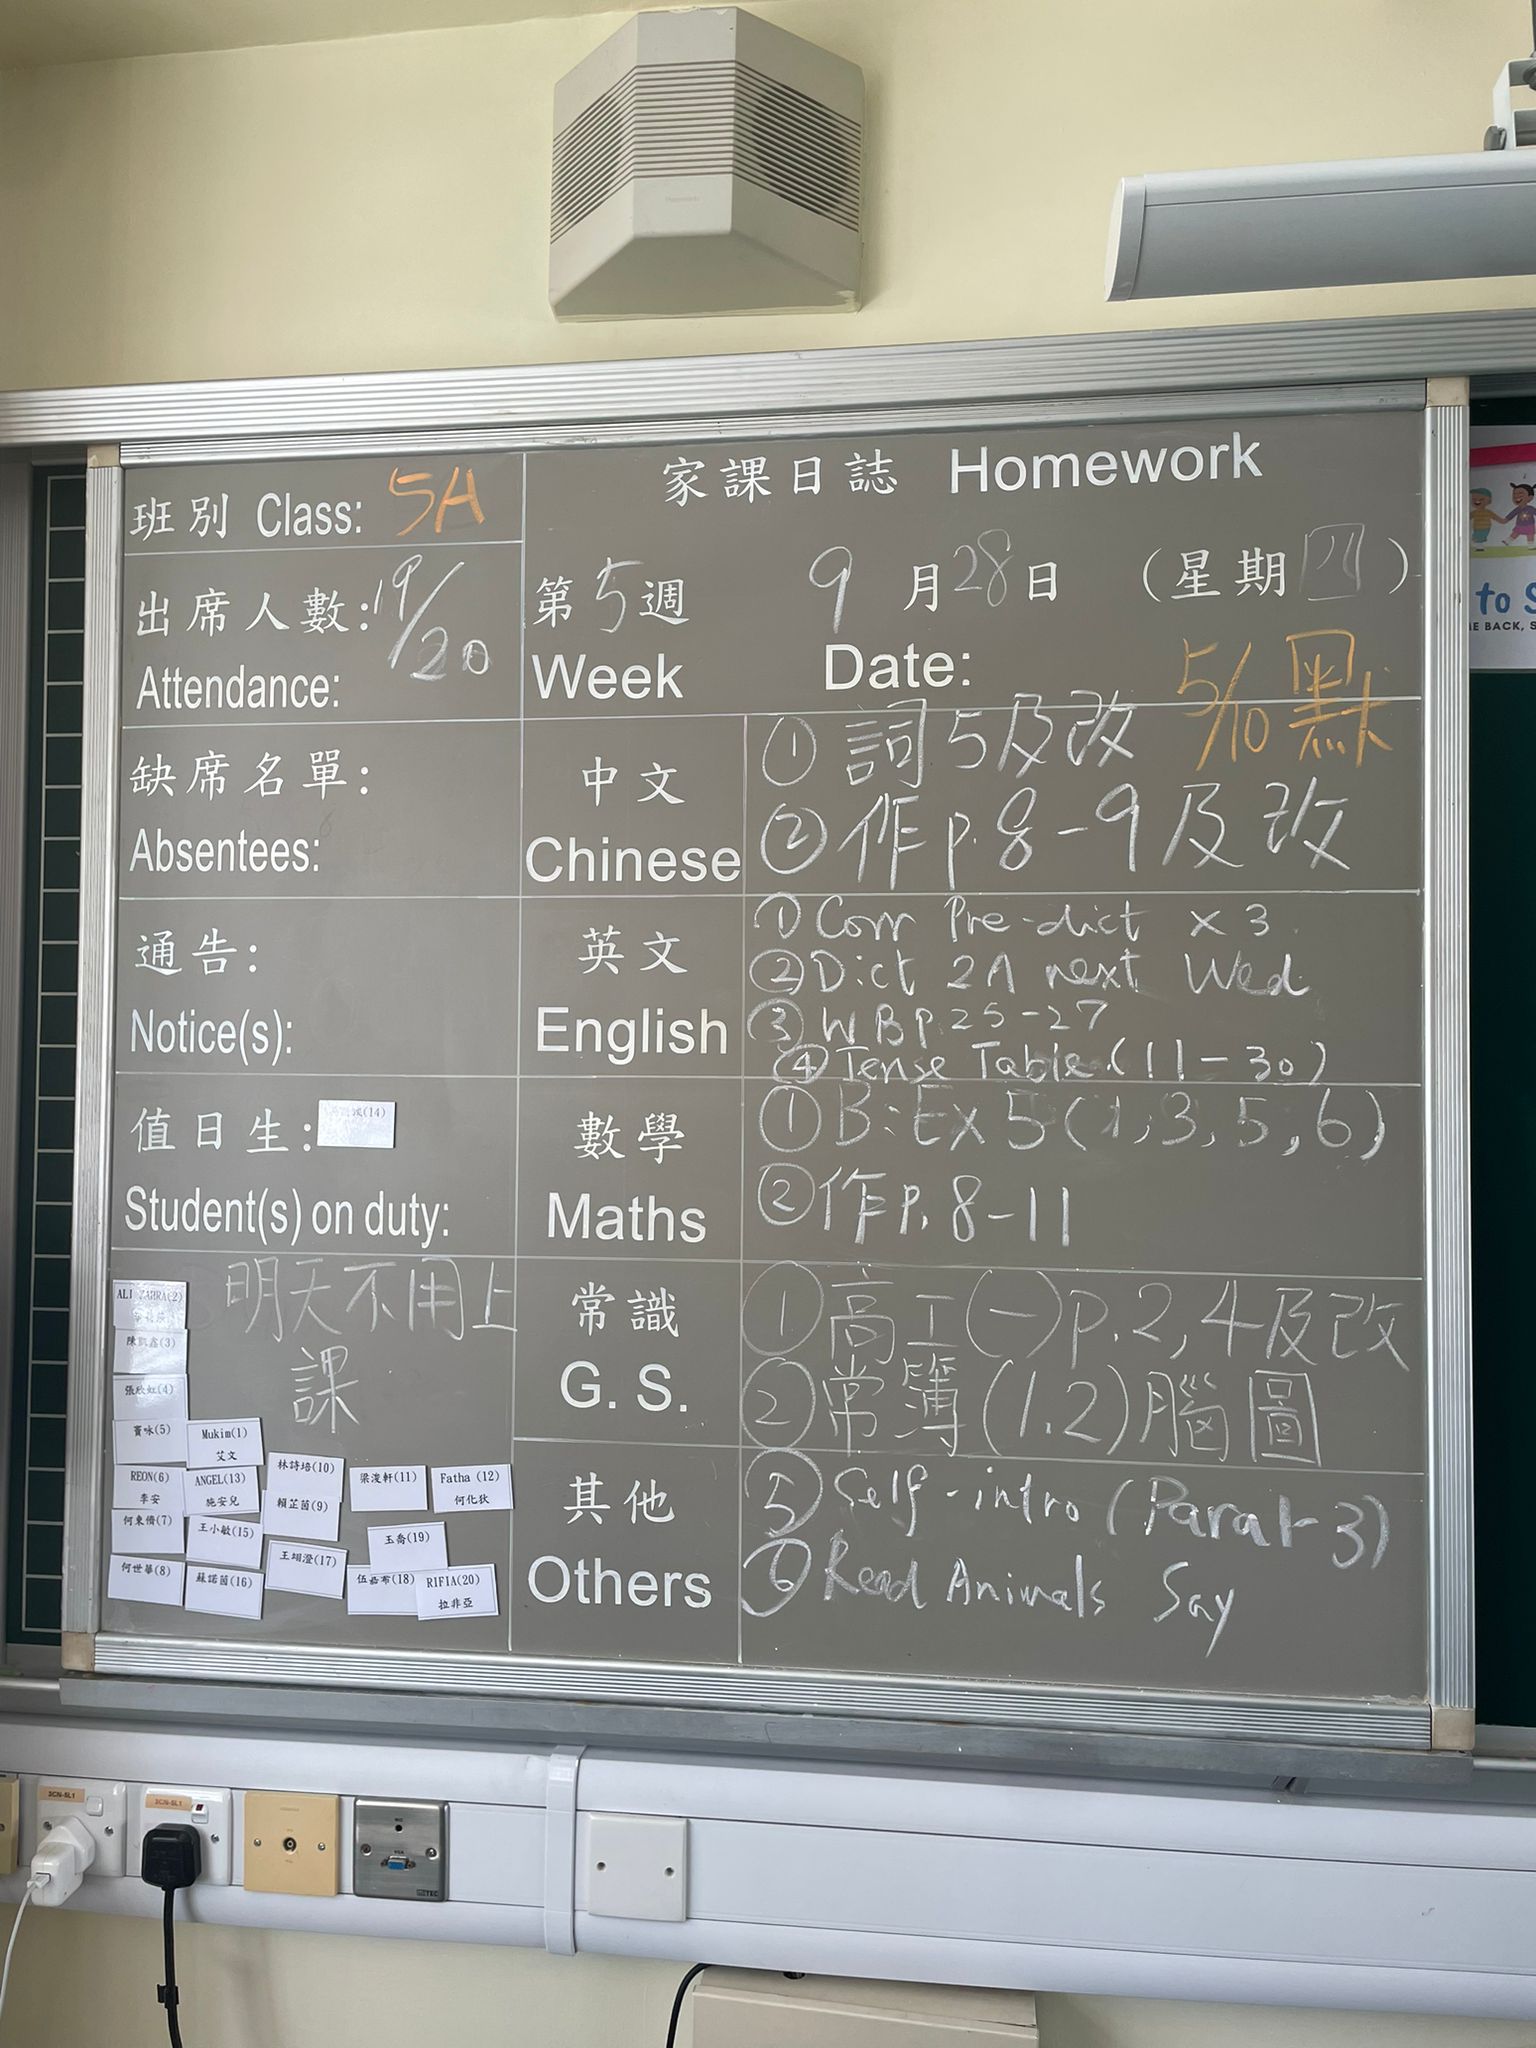 家課日誌 Homework
班別 Class: 5A
出席人數: 19/20
Attendance:
第5週
Week
9月28日 (星期四)
Date:
缺席名單:
Absentees:
中文
Chinese
① 詞5及改 5/10 默
② 作p.8-9及改
通告:
Notice(s):
英文
English
① Corr Pre-dict x 3
② Dict 2A next Wed
③ WB p.25-27
④ Tense Table (11-30)
值日生: (14)
Student(s) on duty:
數學
Maths
① B:Ex 5 (1,3,5,6)
② 作p.8-11
明天不用上
課
常識
G. S.
① 高工(一)p.2,4及改
② 常簿(1.2)腦圖
其他
Others
⑤ Self-intro (Para 1-3)
⑥ Read Animals Say
ALI ZAHRA(2)
陳凱鑫(3)
張欣虹(4)
寶咏(5)
Mukim(1)
艾文
REON(6)
李安
ANGEL(13)
施安兒
林詩培(10)
梁浚軒(11)
Fatha (12)
何化狄
賴芷茵(9)
何東僑(7)
王小敏(15)
玉喬(19)
王翊澄(17)
何世華(8)
蘇諾茵(16)
伍嘉希(18)
RIFIA(20)
拉非亞
to S
ME BACK, S
3CN-5L1
3CN-5L1
VGA